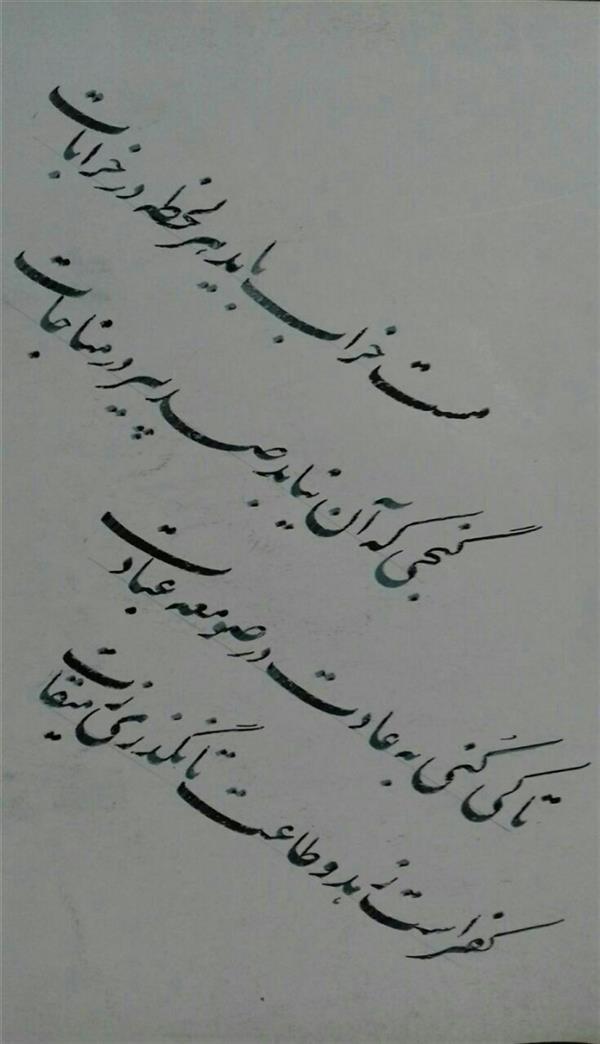 مست خراب یابد هر لحظه در خرابات
گنجی که آن نیابد صد پیر در مناجات
تا کی کُنی به عادت در صومعه عبادت
کفر است زهد و طاعت تا نگذری ز میقات